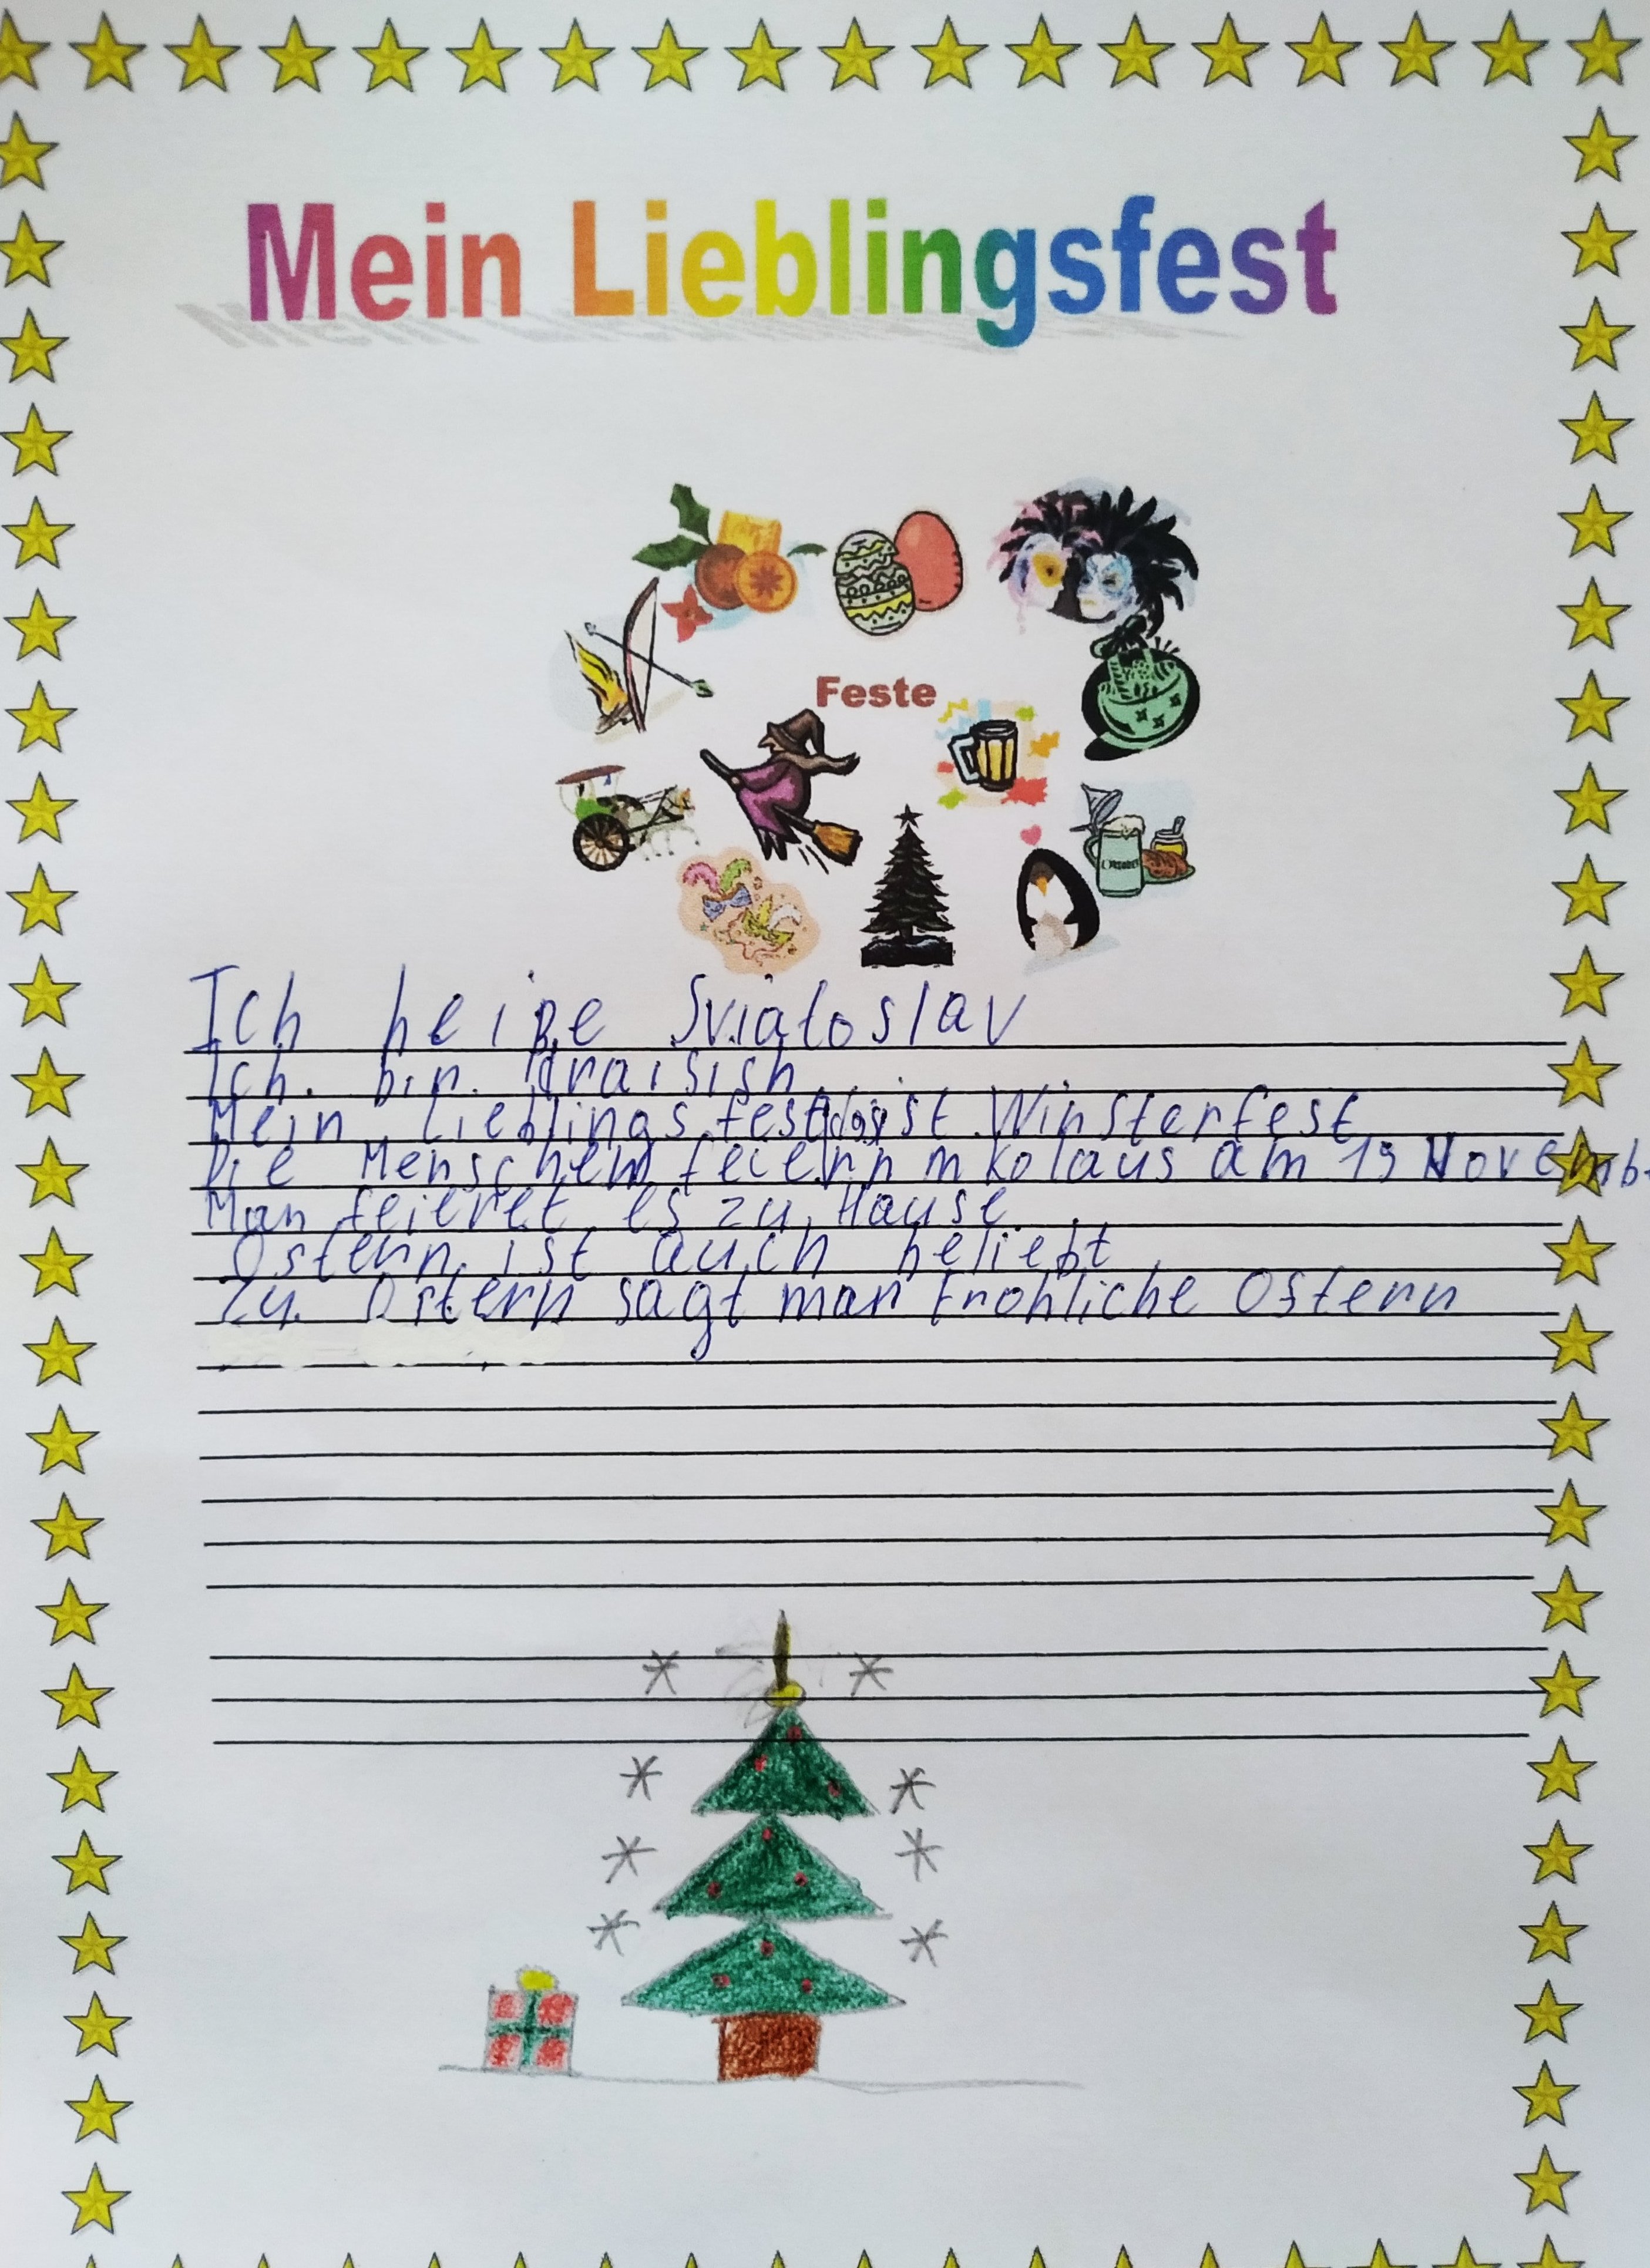 Mein Lieblingsfest
Feste
Ich heiße Sviatoslav
Ich bin
Mein Lieblingsfest ist Winsterfest
Die Menschen feiern mkolaus am 19 Novemb
Man feieret es zu Hause.
Ostern ist auch beliebt
Zu Ostern sagt man Frohliche Ostern